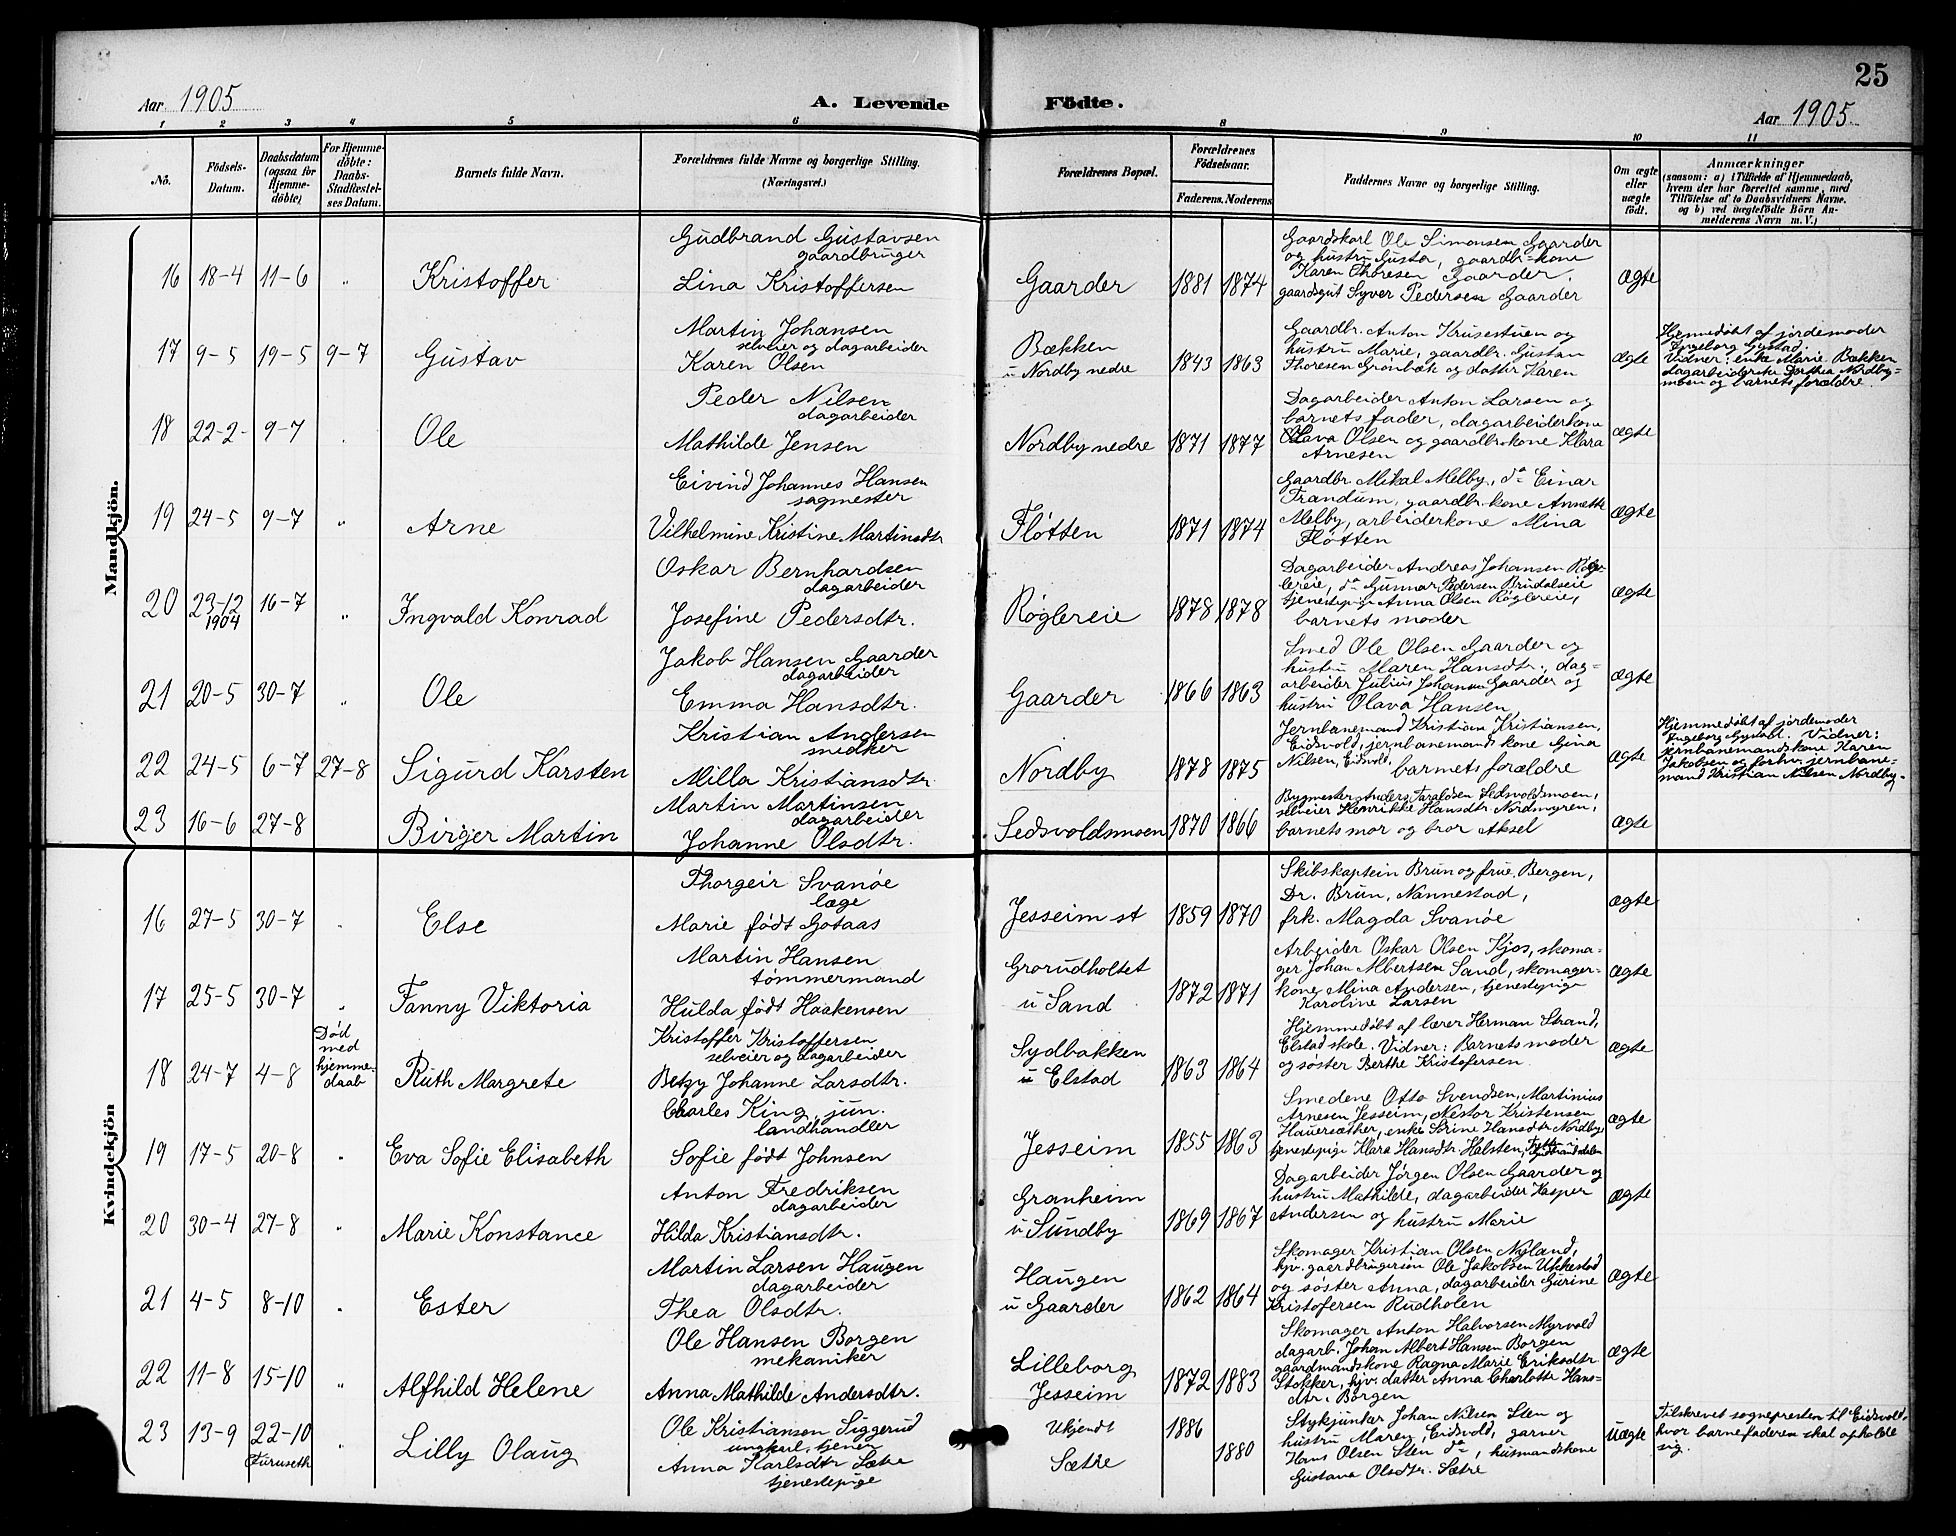 25
Aar 1905
A. Levende
Födte.
Aar 1905.
1 2 3 4 5 6 8 9 10 11
No.
Födsels-
Datum.
Daabsdatum
(ogsaa for
Hjemme-
döbte)
For Hjemme-
döbte:
Daabs-
Stadfæstel-
ses Datum.
Barnets fulde Navn.
Forældrenes fulde Navne og borgerlige Stilling.
(Næringsvei.)
Forældrenes Bopæl.
Forældrenes
Födselsaar.
Faderens. Moderens
Faddernes Navne og borgerlige Stilling.
Om ægte
eller
uægte
födt.
Anmærkninger
(saasom: a) i Tilfælde af Hjemmedaab,
hvem der har forrettet samme, med
Tilföielse af to Daabsvidners Navne.
og b) ved uægtefödte Börn An-
melderens Navn m.V.)
Mandkjön.
16 18-4 11-6 " Kristoffer
Gudbrand Gustavsen
gaardbruger
Lina Kristoffersen
Gaarder 1881 1874
Gaardskarl Ole Simonsen Gaarder
og hustru Gusta, gaardbr-kone
Karen Thoresen Gaarder,
gaardsgut Syver Pedersen Gaarder
Ægte
17 9-5 19-5 9-7 Gustav
Martin Johansen
selveier og dagarbeider
Karen Olsen
Bækken
u Nordby nedre 1843 1863
Gaardbr. Anton Krusestuen og
hustru Marie, gaardbr. Gustav
Thoresen Grønbæk og datter Karen
ægte
Hjemmedøbt af jordemoder
Ingeborg Gystad.
Vidner: enke Marie Bækken
dagarbeiderske Dorthea Nordby-
og barnets forældre.
18 22-2- 9-7 Ole
Peder Nilsen
dagarbeider
Mathilde Jensen
Nordby nedre 1871 1877
Dagarbeider Anton Larsen og
barnets fader, dagarbeiderkone
Olava Olsen og gaardbrkone Klara
Arnesen
ægte
19 24-5 9-7 " Arne
Eivind Johannes Hansen
sagmester
Vilhelmine Kristine Martinsdtr
Fløtten 1871 1874
Gaardbr Mikal Melby, do Einar
Trandum, gaardbr.kone Annette
Melby, arbeiderkone Mina
Fløtten
ægte
20 23-12
1904 16-7 " Ingvald Konrad
Oskar Bernhardsen
dagarbeider
Josefine Pedersdtr.
Røglereie 1878 1878
Dagarbeider Andreas Johansen Røg-
lereie, do Gunnar Pedersen Brudalseie
tjenestepige Anna Olsen Røglereie,
barnets moder
ægte
21 20-5 30-7 " Ole
Jakob Hansen Gaarder
dagarbeider
Emma Hansdtr.
Gaarder 1866 1863
Smed Ole Olsen Gaarder og
hustru Maren Hansdtr., dag-
arbeider Julius Johansen Gaarder og
hustru Olava Hansen
ægte
22 24-5 6-7 27-8 Sigurd Karsten
Kristian Andersen
snedker
Milla Kristiansdtr
Nordby 1878 1875
Jernbanemand Kristian Kristiansen,
Eidsvold, jernbanemands kone Gina
Nilsen, Eidsvold,
barnets forældre
ægte
Hjemmedøbt af jordemoder
Ingeborg Gystad. Vidner:
jernbanemandskone Karen
Jakobsen og forhv. jernbane-
mand Kristian Nilsen Nordby.
23 16-6 27-8 Birger Martin
Martin Martinsen
dagarbeider
Johanne Olsdtr.
Sedsvoldsmoen 1870 1866
Bygmester Anders Taraldsen Sedsvoldsmoen,
selveier Henrikke Hansdtr Nordmyren,
barnets mor og bror Aksel
ægte
Kvindekjön
16 27-5 30-7 " Else
Thorgeir Svanöe
læge
Marie født Gotaas
Jesseim st 1859 1870
Skibskaptein Brun og frue, Bergen,
Dr. Brun, Nannestad,
frk. Magda Svanöe
ægte
17 25-5 30-7 " Fanny Viktoria
Martin Hansen
tømmermand
Hulda født Haakensen
Grorudholtet
u Sand 1872 1871
Arbeider Oskar Olsen Kjos, skoma-
ger Johan Albertsen Sand, skomager-
kone Mina Andersen, tjenestepige
Karoline Larsen
ægte
18 24-7 4-8
Død
med
hjemme-
daab
Ruth Margrete
Kristoffer Kristoffersen
selveier og dagarbeider
Betzy Johanne Larsdtr.
Sydbakken
u Elstad 1863 1864
Hjemmedøbt af lærer Herman Strand,
Elstad skole. Vidner: Barnets moder
og søster Berthe Kristofersen
ægte
19 17-5 20-8 " Eva Sofie Elisabeth
Charles King, jun.
landhandler
Sofie født Johnsen
Jesseim 1855 1863
Smedene Otto Svendsen, Martinius
Arnesen Jesseim, Nestor Kristensen
Hauersæther, enke Serine Hansdtr Nordby
tjenestepige Klara Hansdtr. Halsten,
ægte
20 30-4 27-8 " Marie Konstance
Anton Fredriksen
dagarbeider
Hilda Kristiansdtr.
Granheim
u Sundby 1869 1867
Dagarbeider Jørgen Olsen Gaarder og
hustru Mathilde, dagarbeider Kasper
Andersen og hustru Marie
ægte
21 4-5 8-10 " Ester
Martin Larsen Haugen
dagarbeider
Thea Olsdtr.
Haugen
u Gaarder 1862 1864
Skomager Kristian Olsen Nyland,
hjv. gaardbrugersøn Ole Jakobsen Ukkestad
og søster Anna, dagarbeider Gurine
Kristofersen Rudholen
ægte
22 11-8 15-10 " Alfhild Helene
Ole Hansen Borgen
mekaniker
Anna Mathilde Andersdtr.
Lilleborg
Jesseim 1872 1883
Skomager Anton Halvorsen Myrvold
dagarb. Johan Albert Hansen Borgen
gaardmandskone Ragna Marie Eriksdtr.
Stokker, hjv. datter Anna Charlotte Hans-
dtr. Borgen
ægte
23 13-9 22-10
Furuseth " Lilly Olaug
Ole Kristiansen Siggerud
ungkarl, tjener
Anna Karlsdtr Sætre
tjenestepige
Ukjendt
Sætre 1886
1880
Stykjunkar Johan Nilsen Sten og
hustru Maren, Eidsvold, garner
Hans Olsen Sten do, husmandskone
Gustava Olsdtr. Sætre
Uægte
Tilskrevet sognepresten til Eidsvold,
hvor barnefaderen skal opholde
sig.